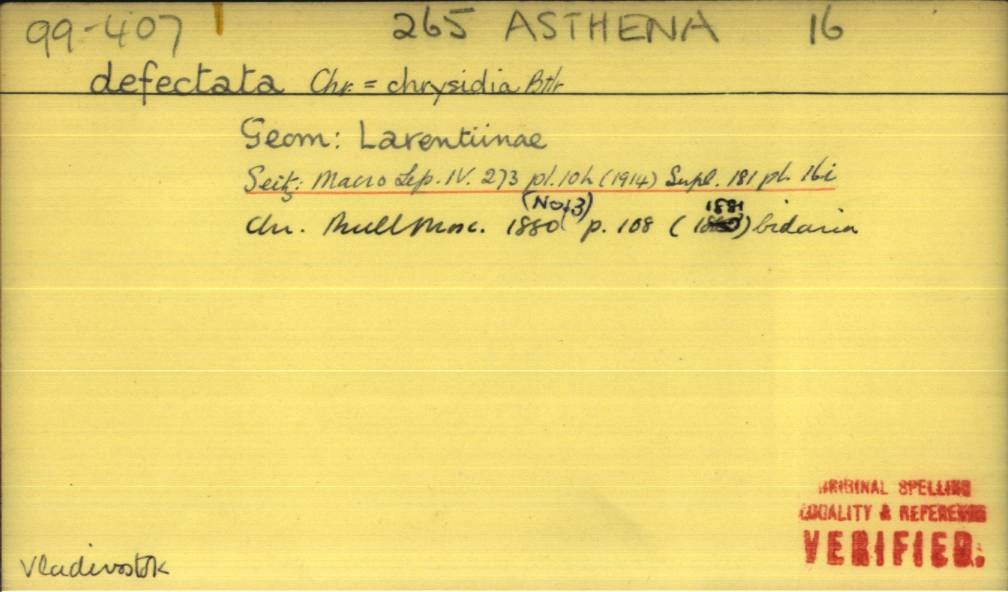 99-407 265 ASTHENA 16
defectata Chr. = chrysidia Btlr
Geom: Larentiinae
Seitz: Macro Lep. IV. 273 pl. 10h (1914) Supl. 181 pl. 16i
(No. 3) 1881
Chr. Bull Mosc. 1880 p. 108 ( ) bidaria
ORIGINAL SPELLING
LOCALITY & REFERENCE
VERIFIED.
Vladivostok